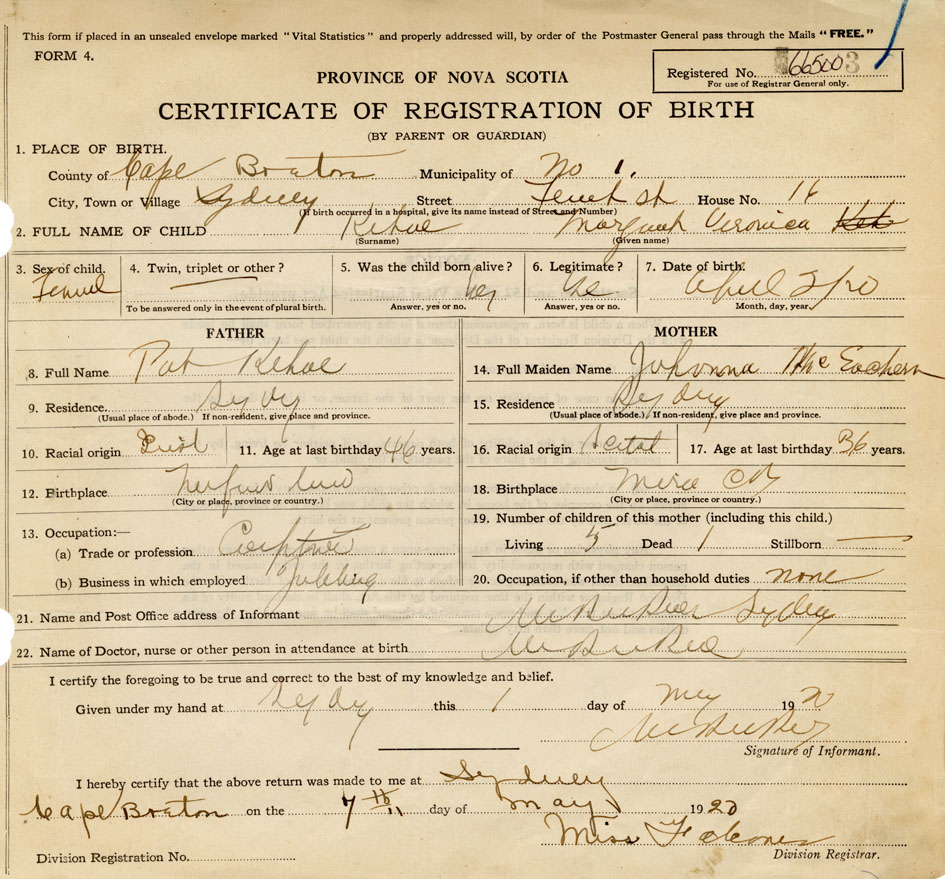 This form if placed in an unsealed envelope marked "Vital Statistics" and properly addressed will, by order of the Postmaster General pass through the Mails "FREE."
FORM 4.
Registered No. 66500 3
For use of Registrar General only.
PROVINCE OF NOVA SCOTIA
CERTIFICATE OF REGISTRATION OF BIRTH
(BY PARENT OR GUARDIAN)
1. PLACE OF BIRTH.
County of Cape Breton Municipality of No 1.
City, Town or Village Sydney Street House No. 16
(If birth occurred in a hospital, give its name instead of Street and Number)
2. FULL NAME OF CHILD Kehoe Veronica
(Surname) (Given name)
3. Sex of child. 4. Twin, triplet or other? 5. Was the child born alive? yes 6. Legitimate? 7. Date of birth. April
To be answered only in the event of plural birth. Answer, yes or no. Answer, yes or no. Month, day, year.
FATHER
8. Full Name Pat Kehoe
9. Residence.
(Usual place of abode.) If non-resident, give place and province.
10. Racial origin 11. Age at last birthday 46 years.
12. Birthplace
(City or place, province or country.)
13. Occupation:—
(a) Trade or profession
(b) Business in which employed Jobbing
MOTHER
14. Full Maiden Name Johanna McEachern
15. Residence Sydney
(Usual place of abode.) If non-resident, give place and province.
16. Racial origin 17. Age at last birthday 36 years.
18. Birthplace Mira CB
(City or place, province or country.)
19. Number of children of this mother (including this child.)
Living 5 Dead 1 Stillborn —
20. Occupation, if other than household duties none
21. Name and Post Office address of Informant Sydney
22. Name of Doctor, nurse or other person in attendance at birth
I certify the foregoing to be true and correct to the best of my knowledge and belief.
Given under my hand at Sydney this 1 day of May 1920
Signature of Informant.
I hereby certify that the above return was made to me at Sydney
Cape Breton on the 7th day of May 1920
Miss Falconer
Division Registration No. Division Registrar.